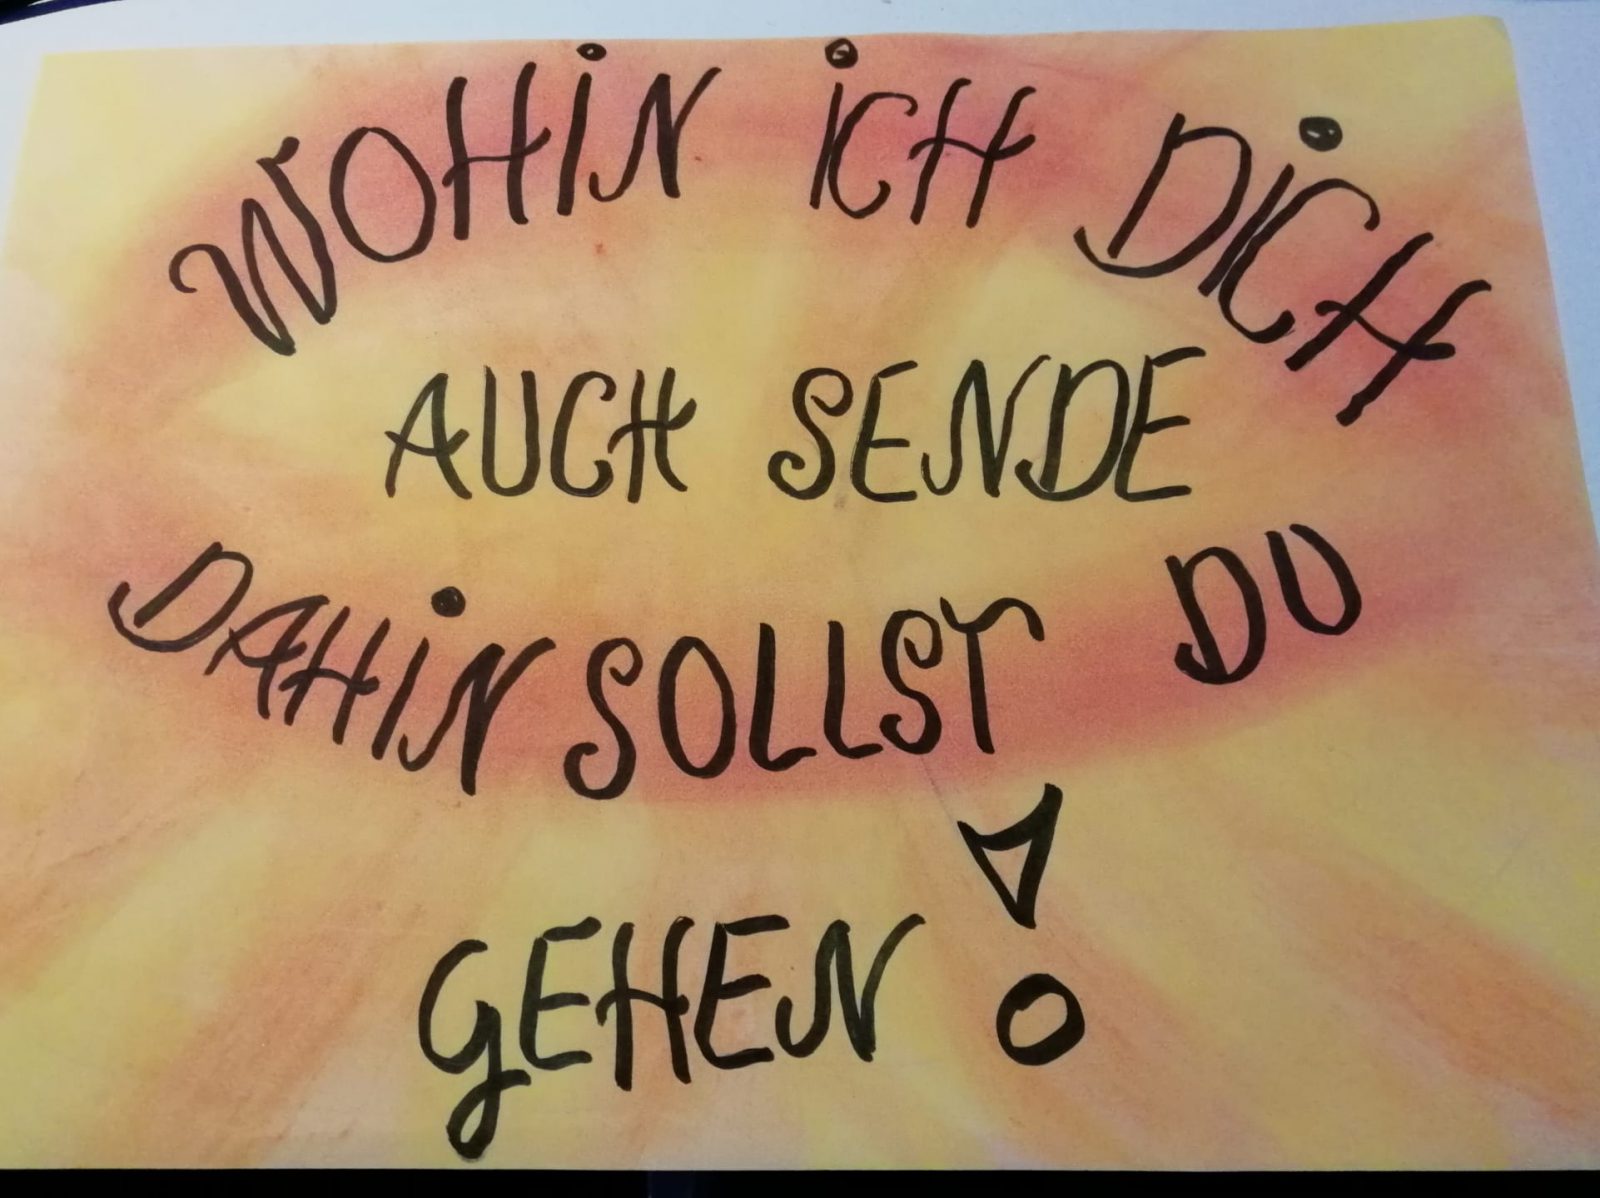 WOHiN iCH DiCH
AUCH SENDE
DAHiN SOLLST DU
GEHEN!